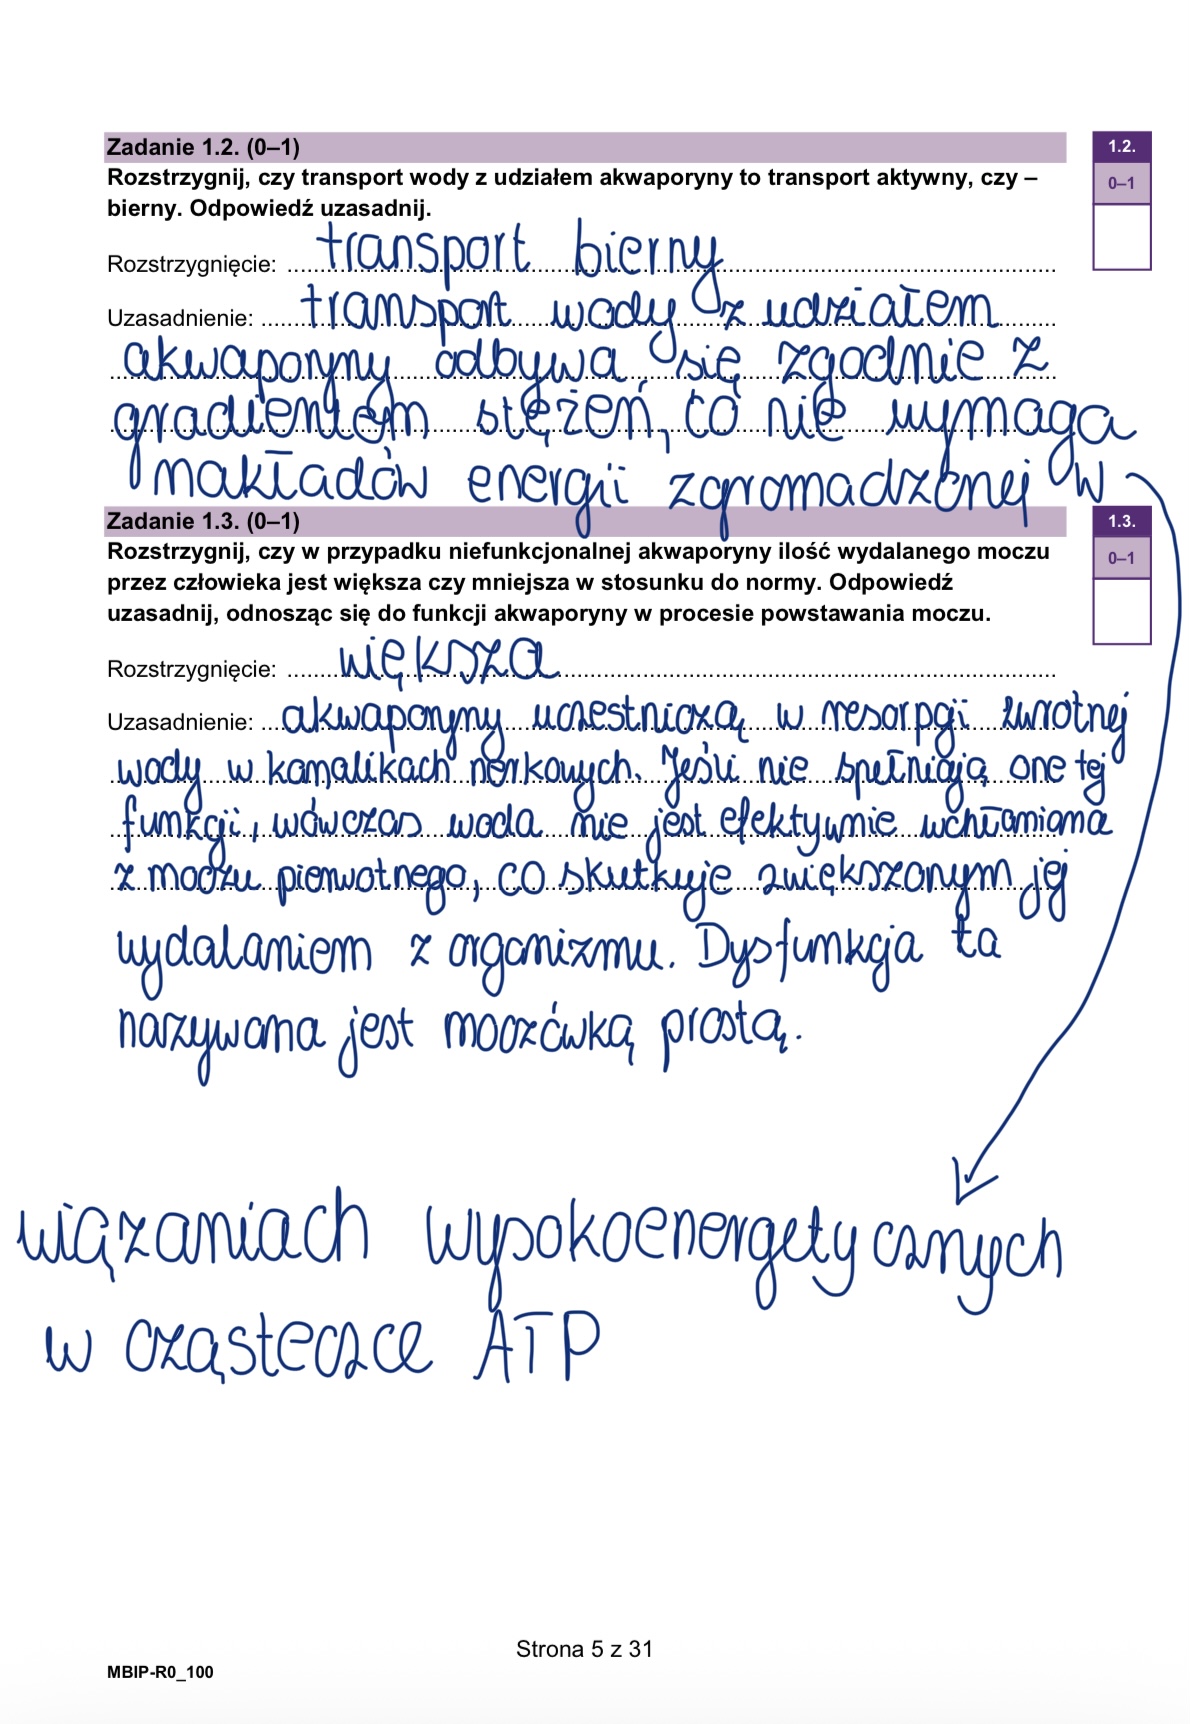 Zadanie 1.2. (0–1)
1.2.
Rozstrzygnij, czy transport wody z udziałem akwaporyny to transport aktywny, czy –
bierny. Odpowiedź uzasadnij.
0–1
Rozstrzygnięcie: transport bierny
Uzasadnienie: transport wody z udziałem
akwaporyny odbywa się zgodnie z
gradientem stężeń, co nie wymaga
nakładów energii zgromadzonej w
Zadanie 1.3. (0–1)
1.3.
Rozstrzygnij, czy w przypadku niefunkcjonalnej akwaporyny ilość wydalanego moczu
przez człowieka jest większa czy mniejsza w stosunku do normy. Odpowiedź
uzasadnij, odnosząc się do funkcji akwaporyny w procesie powstawania moczu.
0–1
Rozstrzygnięcie: większa
Uzasadnienie: akwaporyny uczestniczą w resorpcji zwrotnej
wody w kanalikach nerkowych. Jeśli nie spełniają one tej
funkcji, wówczas woda nie jest efektywnie wchłaniana
z moczu pierwotnego, co skutkuje zwiększonym jej
wydalaniem z organizmu. Dysfunkcja ta
nazywana jest moczówką prostą.
wiązaniach wysokoenergetycznych
w cząsteczce ATP
Strona 5 z 31
MBIP-R0_100